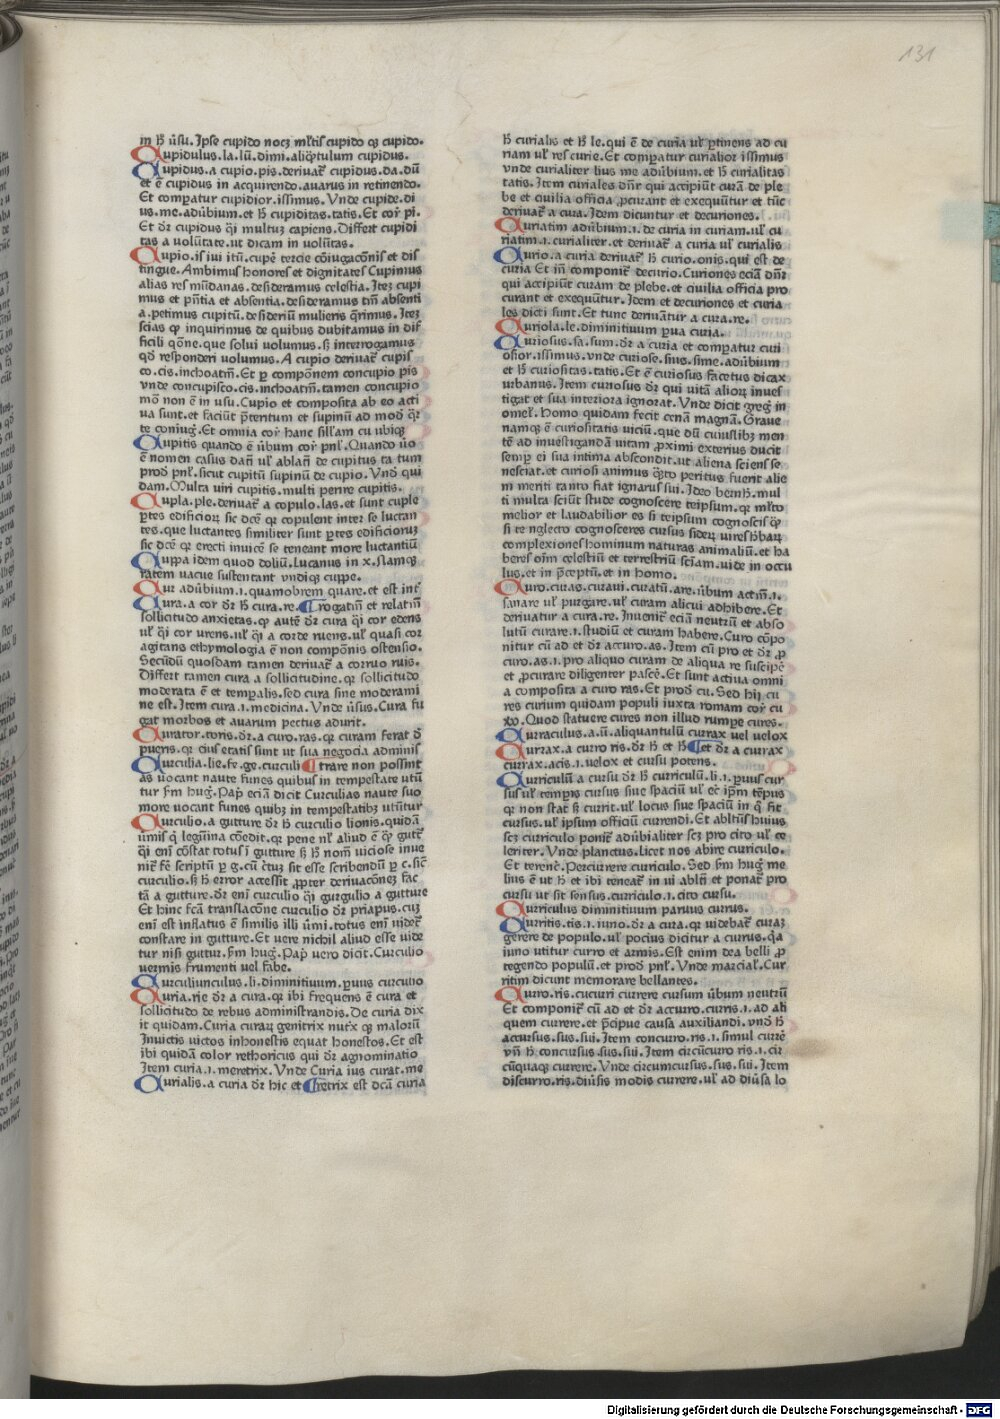 131
in ħ ūsu. Ipse cupido nocꝫ mltis cupido qꝫ cupido.
Cupidulus.la.lū.dimi.aliqͣntulum cupidus.
Cupidus.a cupio.pis.deriuat᷑ cupidus.da.dū
et ē cupidus in acquirendo.auarus in retinendo.
Et compatur cupidior.issimus. Vnde cupide.di
us.me.aduībium.et ħ cupiditas.tatis. Et cor̄ pi.
Et dꝛ cupidus qͥi multuꝫ capiens. Differt cupidi
tas a volūtate.ut dicam in volūtas.
Cupio.is iui itū.cupē tercie cōiugacōnis et dis
tingue. Ambimus honores et dignitates Cupimus
alias res mūdanas.desideramus celestia. Iteꝫ cupi
mus et pn̄tia et absentia.desideramus tm̄ absenti
a.petimus cupitū.desideriū mulieris q̄rimus. Iteꝫ
scias qp inquirimus de quibus dubitamus in dif
ficili qōne.que solui volumus.ꝫ interrogamus
qd̄ responderi uolumus. A cupio deriuat᷑ cupis
co.cis.inchoatm̄. Et p componem concupio pis
vnde concupisco.cis.inchoatm̄.tamen concupio
mō non ē in usu. Cupio et composita ab eo acti
ua sunt.et faciūt p̄teritum et supinū ad mod̄ qͣr
te coniug᷑. Et omnia cor̄ hanc sillam cu ubiqꝫ
Cupitis quando ē ūbum cor̄ pnl̄. Quando ūo
ē nomen casus datī ul̄ ablatī de cupitus ta tum
prod̄ pnl̄.sicut cupitū supinū de cupio. Vnd̄ qui
dam. Multa uiri cupitis.multi perire cupitis.
Cupla.ple.deriuat᷑ a copulo.las.et sunt cuple
ptes edificioꝝ sic dcē qꝛ copulent inter se luctan
tes.que luctantes similiter sunt ptes edificioruꝫ
sic dcē qꝛ erecti inuicē se teneant more luctantiū
Cuppa idem quod doliū. Lucanus in x. Namqꝫ
ratem uacue sustentant vndiqꝫ cuppe.
Cur aduībium.i.quamobrem quare.et est intͬ
Cura.a cor dꝛ ħ cura.re. ¶rogatm̄ et relatm̄
sollicitudo anxietas.qp autē dꝛ cura qͥi cor edens
ul̄ qͥi cor urens.ul̄ qͥi a corde ruens.ul̄ quasi cor
agitans ethymologia ē non componis ostensio.
Secūdū quosdam tamen deriuat᷑ a corruo ruis.
Differt tamen cura a sollicitudine.qꝛ sollicitudo
moderata ē et tempalis.sed cura sine moderami
ne est. Item cura.i.medicina. Vnde ūsus. Cura fu
gat morbos et auarum pectus adurit.
Curator.toris.dꝛ.a curo.ras.qꝛ curam ferat d̄
pueris.qꝛ eius etatis sunt ut sua negocia adminis
Curculia.lie.fe.ge.curculi ¶trare non possint
as uocant naute funes quibus in tempestate utū
tur s̄m hug᷑. Pap̄ eciā dicit Curculias naute suo
more uocant funes quibꝫ in tempestatibꝫ utūtur
Curculio.a gutture dꝛ ħ curculio lionis.quidā
ūmis qͥ legūina cōedit.qꝛ pene nil̄ aliud ē qͥꝫ gutt᷑
qͥi enī cōstat totus ī gutture ꝫ ħ nom̄ viciose inue
nit᷑ fē scriptū p g.cū ctuꝫ sit esse scribendū p c.sic
curculio.ꝫ ħ error accessit ꝓpter deriuacōneꝫ fac
tā a gutture.dꝛ enī curculio qͥi gurgulio a gutture
Et hinc fcā translacōne curculio dꝛ priapus.cuꝫ
enī est inflatus ē similis illi ūmi.totus enī uidet᷑
constare in gutture. Et uere nichil aliud esse uide
tur nisi guttur.s̄m hug᷑. Pap̄ vero dicit. Curculio
vermis frumenti vel fabe.
Curculiunculus.li.diminitiuum.puus curculio
Curia.rie dꝛ a cura.qꝛ ibi frequens ē cura et
sollicitudo de rebus administrandis. De curia dix
it quidam. Curia curaꝝ genitrix nutͥx qꝫ maloꝝ
Inuictis uictos inhonestis equat honestos. Et est
ibi quidā color rethoricus qui dꝛ agnominatio
Item curia.i.meretrix. Vnde Curia ius curat.me
Curialis.a curia dꝛ hic et ¶retrix est dcā curia
ħ curialis et ħ le.qui ē de curia ul̄ ptinens ad cu
riam ul̄ res curie. Et compatur curialior issimus
vnde curialiter lius me aduībium.et ħ curialitas
tatis. Item curiales dn̄r qui accipiūt curā de ple
be et ciuilia officia ꝓcurant et exequūtur et tūc
deriuat᷑ a cura. Idem dicuntur et decuriones.
Curiatim aduībium.i.de curia in curiam.ul̄ cu
riatim.i.curialiter.et deriuat᷑ a curia ul̄ curialis
Curio.a curia deriuat᷑ ħ curio.onis.qui est de
curia Et in componit᷑ decurio. Curiones eciā dn̄r
qui accipiunt curam de plebe.et ciuilia officia pro
curant et exequūtur. Idem et decuriones et curia
les dicti sunt. Et tunc deriuātur a cura.re.
Curiola.le.diminitiuum pua curia.
Curiosus.sa.sum.dꝛ a curia et compatur curi
osior.issimus.vnde curiose.sius.sime.aduībium
et ħ curiositas.tatis. Et ē curiosus facetus dicax
urbanus. Item curiosus dꝛ qui uitā alioꝝ inues
tigat et sua interiora ignorat. Vnde dicit greg᷑ in
omel᷑. Homo quidam fecit cenā magnā. Graue
namqꝫ ē curiositatis viciū.que dū cuiuslibꝫ men
tē ad inuestigandā uitam ꝓximi exterius ducit
semp ei sua intima abscondit.ut aliena sciens se
nesciat.et curiosi animus qͣnto peritus fuerit alie
ni meriti tanto fiat ignarus sui. Ideo bernh᷑. mul
ti multa sciūt stude cognoscere teipsum.qꝛ mlto
melior et laudabilior es si teipsum cognoscis qͣꝫ
si te neglecto cognosceres cursus sideꝝ uires ħbaꝝ
complexiones hominum naturas animaliū.et ha
beres oīm celestiū et terrestriū sciam.uide in occu
lus.et in pceptū.et in homo.
Curo.curas.curaui.curatū.are.ūbum actm̄.i.
sanare ul̄ purgare.ul̄ curam alicui adhibere. Et
deriuatur a cura.re. Inuenit᷑ eciā neutrū et abso
lutū curare.i.studiū et curam habere. Curo cōpo
nitur cū ad et dꝛ accuro.as. Item cū pro et dꝛ ꝓ
curo.as.i.pro aliquo curam de aliqua re suscipē
et ꝓcurare diligenter pascē. Et sunt actiua omni
a composita a curo ras. Et prod̄ cu. Sed hij cu
res curium quidam populi iuxta romam cor̄ cu
xō. Quod statuere cures non illud rumpe cures.
Curraculus.a.ū.aliquantulū currax vel velox
Currax.a curro ris.dꝛ ħ et ħ ¶et dꝛ a currax
currax.acis.i.velox et cursu potens.
Curriculū a cursu dꝛ ħ curriculū.li.i.puus cur
sus ul̄ tempis cursus siue spaciū ul̄ eͨ ipm̄ tēpus
qꝛ non stat ꝫ currit.ul̄ locus siue spaciū in qͦ fit
cursus.ul̄ ipsum officiū currendi. Et abltūs huius
scꝫ curriculo ponit᷑ aduībialiter scꝫ pro cito ul̄ ce
leriter. Vnde planctus.licet nos abire curriculo.
Et terenc᷑. Percurrere curriculo. Sed s̄m hug᷑ me
lius ē ut ħ et ibi teneat᷑ in ui abltī et ponat᷑ pro
cursu ut sit sensus.curriculo.i.cito cursu.
Curriculus diminitiuum paruus currus.
Curritis.tis.i.iuno.dꝛ a cura.qꝛ uidebat᷑ curaꝫ
gerere de populo.ul̄ pocius dicitur a currus.qͣ
iuno utitur curro et armis. Est enim dea belli ꝓ
tegendo populū.et prod̄ pnl̄. Vnde marcial᷑. Cur
ritim dicunt memorare bellantes.
Curro.ris.cucuri currere cursum ūbum neutrū
Et componit᷑ cū ad et dꝛ accurro.curris.i.ad ali
quem currere.et pcipue causa auxiliandi.vnd̄ ħ
accursus.sus.sui. Item concurro.ris.i.simul currē
vn̄ ħ concursus.sus.sui. Item circūcurro ris.i.cir
cūquaqꝫ currere. Vnde circumcursus.sus.sui. Item
discurro.ris.diūsis modis currere.ul̄ ad diūsa lo
Digitalisierung gefördert durch die Deutsche Forschungsgemeinschaft - DFG